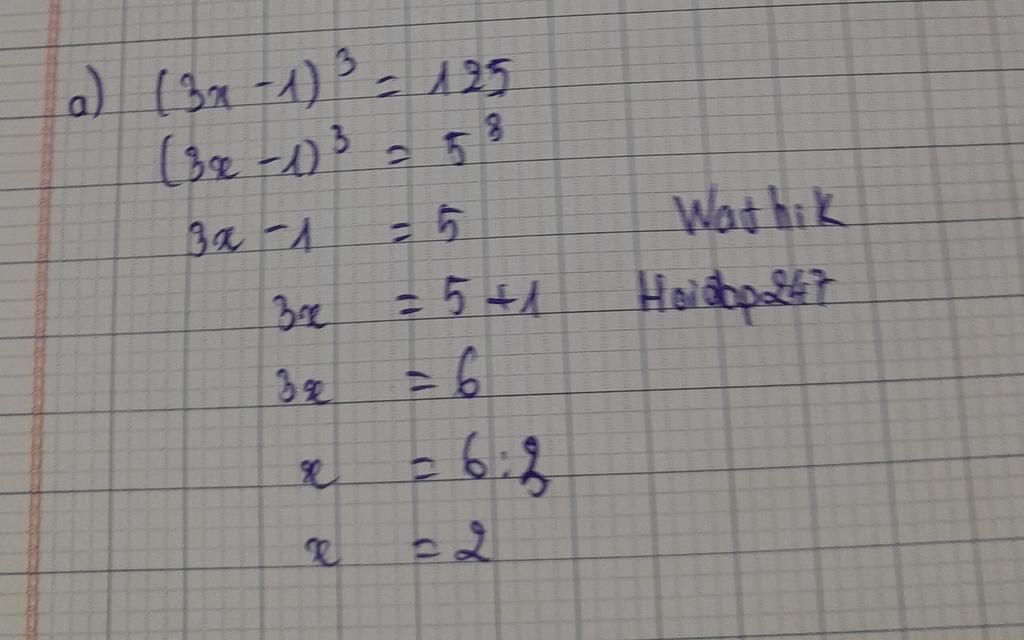 a) (3x - 1)³ = 125
(3x - 1)³ = 5³
3x - 1 = 5
Wathik
3x = 5 + 1
3x = 6
x = 6 : 3
x = 2